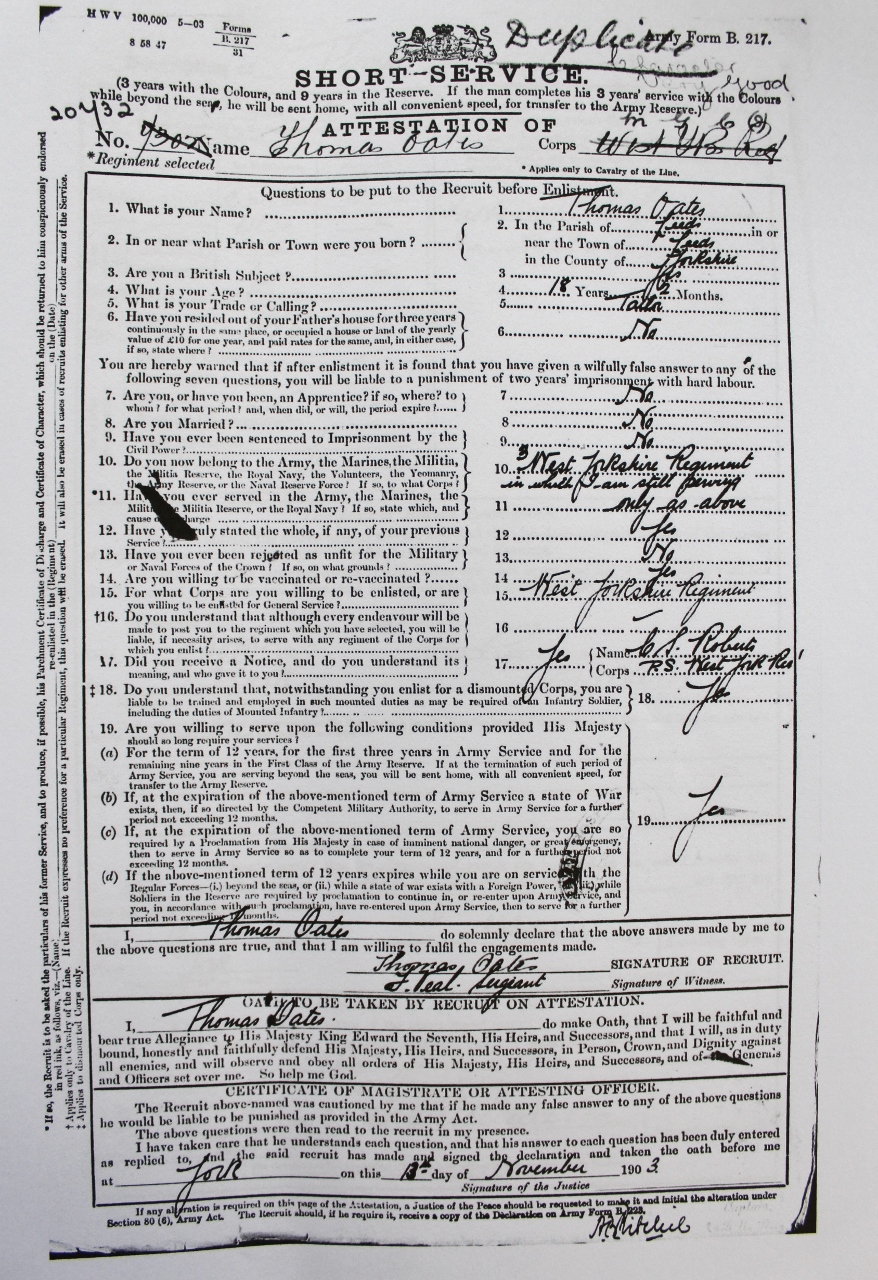 HWV 100,000 5—03 Forms
B. 217
31
8 58 47
Duplicate
Army Form B. 217.
SHORT SERVICE.
Good
(3 years with the Colours, and 9 years in the Reserve. If the man completes his 3 years' service with the Colours
while beyond the seas, he will be sent home, with all convenient speed, for transfer to the Army Reserve.)
20432
M G C
ATTESTATION OF
No. 7302 Name Thomas Oates Corps West York Reg
*Regiment selected
* Applies only to Cavalry of the Line.
Questions to be put to the Recruit before Enlistment.
1. What is your Name? 1. Thomas Oates
2. In or near what Parish or Town were you born? 2. In the Parish of Leeds in or
near the Town of Leeds
in the County of Yorkshire
3. Are you a British Subject? 3 Yes
4. What is your Age? 4. 18 Years 2 Months.
5. What is your Trade or Calling? 5. Tailor
6. Have you resided out of your Father's house for three years
continuously in the same place, or occupied a house or land of the yearly
value of £10 for one year, and paid rates for the same, and, in either case,
if so, state where? 6. No
You are hereby warned that if after enlistment it is found that you have given a wilfully false answer to any of the
following seven questions, you will be liable to a punishment of two years' imprisonment with hard labour.
7. Are you, or have you been, an Apprentice? if so, where? to
whom? for what period? and, when did, or will, the period expire? 7 No
8. Are you Married? 8 No
9. Have you ever been sentenced to Imprisonment by the
Civil Power? 9. No
10. Do you now belong to the Army, the Marines, the Militia,
the Militia Reserve, the Royal Navy, the Volunteers, the Yeomanry,
the Army Reserve, or the Naval Reserve Force? If so, to what Corps? 10. 3 West Yorkshire Regiment
in which I am still serving
*11. Have you ever served in the Army, the Marines, the
Militia, the Militia Reserve, or the Royal Navy? If so, state which, and
cause of discharge 11 only as above
12. Have you truly stated the whole, if any, of your previous
Service? 12 Yes
13. Have you ever been rejected as unfit for the Military
or Naval Forces of the Crown? If so, on what grounds? 13. No
14. Are you willing to be vaccinated or re-vaccinated? 14 Yes
15. For what Corps are you willing to be enlisted, or are
you willing to be enlisted for General Service? 15 West Yorkshire Regiment
†16. Do you understand that although every endeavour will be
made to post you to the regiment which you have selected, you will be
liable, if necessity arises, to serve with any regiment of the Corps for
which you enlist? 16 —
17. Did you receive a Notice, and do you understand its
meaning, and who gave it to you? 17. Yes Name C. S. Roberts
Corps P.S. West York Reg
‡18. Do you understand that, notwithstanding you enlist for a dismounted Corps, you are
liable to be trained and employed in such mounted duties as may be required of an Infantry Soldier,
including the duties of Mounted Infantry? 18. Yes
19. Are you willing to serve upon the following conditions provided His Majesty
should so long require your services?
(a) For the term of 12 years, for the first three years in Army Service and for the
remaining nine years in the First Class of the Army Reserve. If at the termination of such period of
Army Service, you are serving beyond the seas, you will be sent home, with all convenient speed, for
transfer to the Army Reserve.
(b) If, at the expiration of the above-mentioned term of Army Service a state of War
exists, then, if so directed by the Competent Military Authority, to serve in Army Service for a further
period not exceeding 12 months.
19. Yes
(c) If, at the expiration of the above-mentioned term of Army Service, you are so
required by a Proclamation from His Majesty in case of imminent national danger, or great emergency,
then to serve in Army Service so as to complete your term of 12 years, and for a further period not
exceeding 12 months.
(d) If the above-mentioned term of 12 years expires while you are on service with the
Regular Forces—(i.) beyond the seas, or (ii.) while a state of war exists with a Foreign Power, while
Soldiers in the Reserve are required by proclamation to continue in, or re-enter upon Army Service, and
you, in accordance with such proclamation, have re-entered upon Army Service, then to serve for a further
period not exceeding months.
I, Thomas Oates do solemnly declare that the above answers made by me to
the above questions are true, and that I am willing to fulfil the engagements made.
Thomas Oates SIGNATURE OF RECRUIT.
Sergeant Signature of Witness.
OATH TO BE TAKEN BY RECRUIT ON ATTESTATION.
I, Thomas Oates. do make Oath, that I will be faithful and
bear true Allegiance to His Majesty King Edward the Seventh, His Heirs, and Successors, and that I will, as in duty
bound, honestly and faithfully defend His Majesty, His Heirs, and Successors, in Person, Crown, and Dignity against
all enemies, and will observe and obey all orders of His Majesty, His Heirs, and Successors, and of Generals
and Officers set over me. So help me God.
CERTIFICATE OF MAGISTRATE OR ATTESTING OFFICER.
The Recruit above-named was cautioned by me that if he made any false answer to any of the above questions
he would be liable to be punished as provided in the Army Act.
The above questions were then read to the recruit in my presence.
I have taken care that he understands each question, and that his answer to each question has been duly entered
as replied to, and the said recruit has made and signed the declaration and taken the oath before me
at York on this 13th day of November 1903
Signature of the Justice
If any alteration is required on this page of the Attestation, a Justice of the Peace should be requested to make it and initial the alteration under
Section 80 (6), Army Act. The Recruit should, if he require it, receive a copy of the Declaration on Army Form B. 223.
* If so, the Recruit is to be asked the particulars of his former Service, and to produce, if possible, his Parchment Certificate of Discharge and Certificate of Character, which should be returned to him conspicuously endorsed
in red ink, as follows, viz.—(Name) re-enlisted in the (Regiment) on the (Date)
† Applies only to Cavalry of the Line. If the Recruit expresses no preference for a particular Regiment, this question will be erased. It will also be erased in cases of recruits enlisting for other arms of the Service.
‡ Applies to dismounted Corps only.